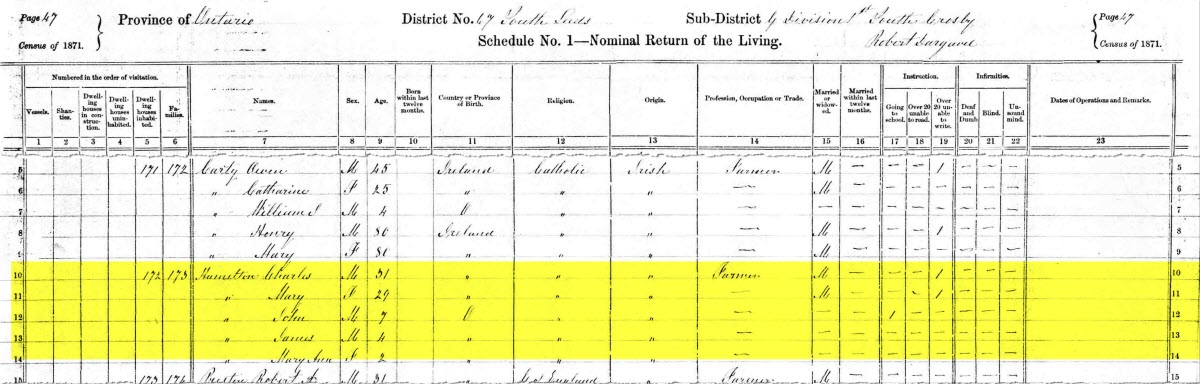 Page 47 Province of Ontario District No. 67 South Leeds Sub-District G Division 1st South Crosby Page 47
Census of 1871. Schedule No. 1—Nominal Return of the Living. Robert Census of 1871.
Numbered in the order of visitation. Names. Sex. Age. Born within last twelve months. Country or Province of Birth. Religion. Origin. Profession, Occupation or Trade. Married or widowed. Married within last twelve months. Instruction. Infirmities. Dates of Operations and Remarks.
Vessels. Shanties. Dwelling houses in construction. Dwelling houses uninhabited. Dwelling houses inhabited. Families. Going to school. Over 20 unable to read. Over 20 unable to write. Deaf and Dumb Blind. Unsound mind.
1 2 3 4 5 6 7 8 9 10 11 12 13 14 15 16 17 18 19 20 21 22 23
5 171 172 Carty Owen M 45 Ireland Catholic Irish Farmer M — — — 1 — — — 5
6 " Catharine F 25 " " " — M — — — — — — 6
7 " William M 4 O " " — — — — — — — — 7
8 " Henry M 80 Ireland " " — M — — — 1 — — — 8
9 " Mary F 80 " " " — M — — — — — — 9
10 172 173 Hamelton Charles M 31 " " " Farmer M — — — 1 — — — 10
11 " Mary F 29 " " " — M — — — 1 — — — 11
12 " John M 7 O " " — — — 1 — — — — — 12
13 " James M 4 " " " — — — — — — — — — 13
14 " Mary Ann F 2 " " " — — — — — — — — — 14
15 173 174 Preston Robert A M 31 " C of England " Farmer M — — — — — — — 15